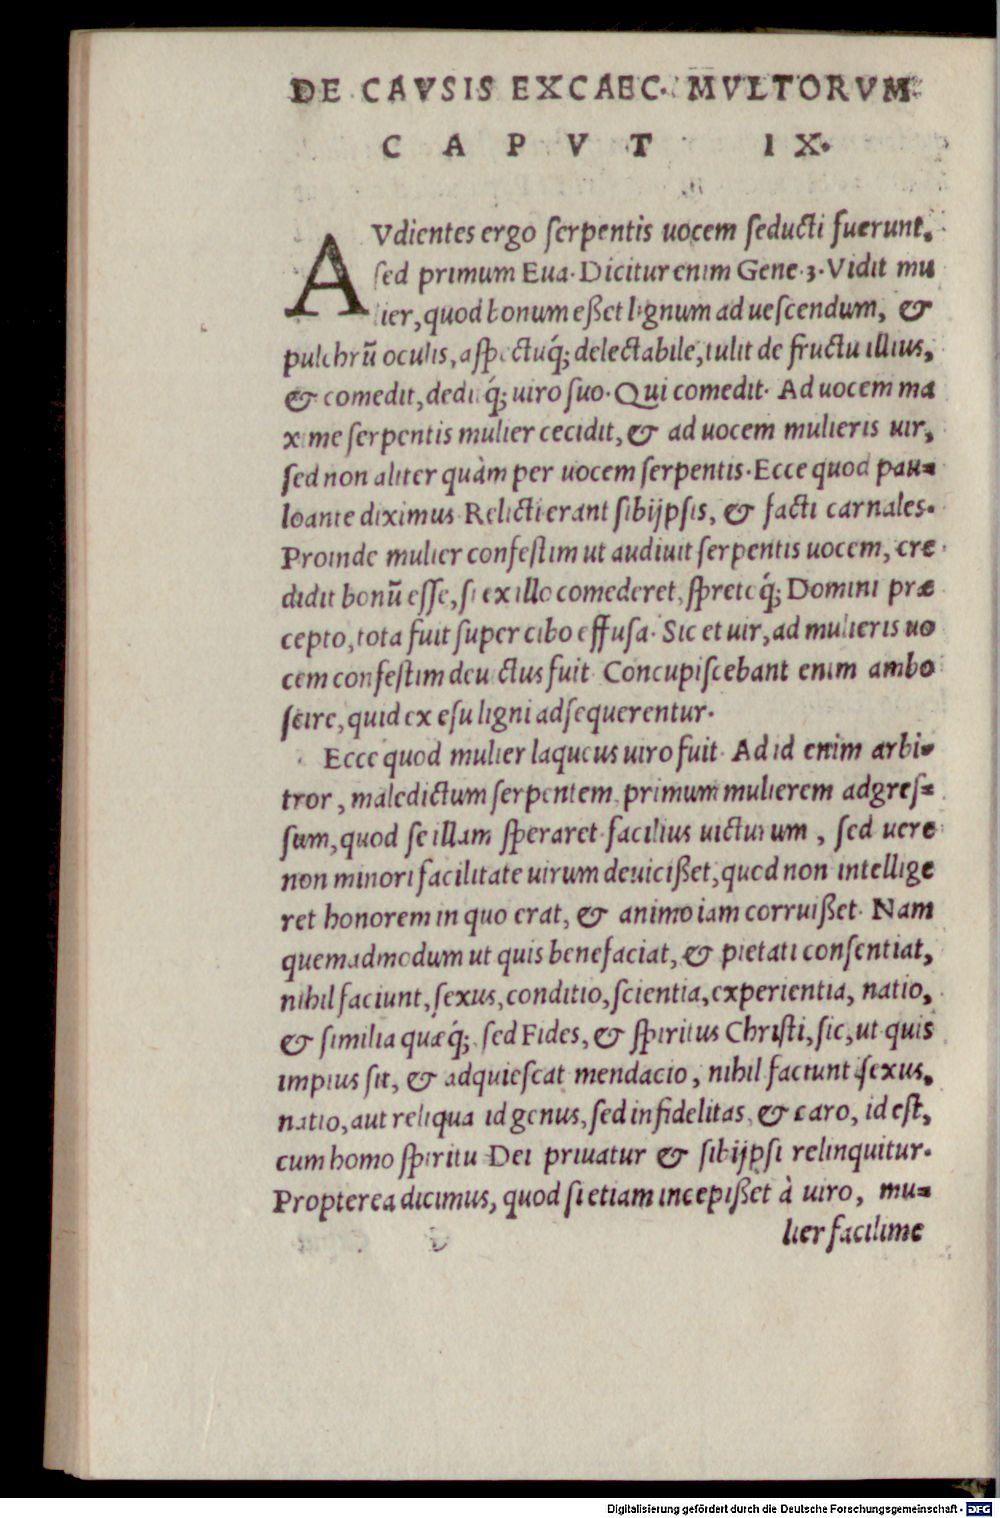 DE CAVSIS EXCAEC. MVLTORVM
CAPVT IX.
AVdientes ergo serpentis uocem seducti fuerunt,
sed primum Eua. Dicitur enim Gene.3. Vidit mu
lier, quod bonum eßet lignum ad uescendum, &
pulchrũ oculis, aspectuq́; delectabile, tulit de fructu illius,
& comedit, deditq́; uiro suo. Qui comedit. Ad uocem ma
xime serpentis mulier cecidit, & ad uocem mulieris uir,
sed non aliter quàm per uocem serpentis. Ecce quod pau=
lo ante diximus. Relicti erant sibijpsis, & facti carnales.
Proinde mulier confestim ut audiuit serpentis uocem, cre
didit bonũ esse, si ex illo comederet, spretoq́; Domini præ
cepto, tota fuit super cibo effusa. Sic et uir, ad mulieris uo
cem confestim deuictus fuit. Concupiscebant enim ambo
scire, quid ex esu ligni adsequerentur.
Ecce quod mulier laqueus uiro fuit. Ad id enim arbi=
tror, maledictum serpentem, primum mulierem adgres=
sum, quod se illam speraret facilius uicturum, sed uere
non minori facilitate uirum deuicißet, quod non intellige
ret honorem in quo erat, & animo iam corruißet. Nam
quemadmodum ut quis benefaciat, & pietati consentiat,
nihil faciunt, sexus, conditio, scientia, experientia, natio,
& similia quæq́;, sed Fides, & spiritus Christi, sic, ut quis
impius sit, & adquiescat mendacio, nihil faciunt sexus,
natio, aut reliqua id genus, sed infidelitas, & caro, id est,
cum homo spiritu Dei priuatur & sibijpsi relinquitur.
Propterea dicimus, quod si etiam incepißet à uiro, mu=
lier facilime
Digitalisierung gefördert durch die Deutsche Forschungsgemeinschaft - DFG